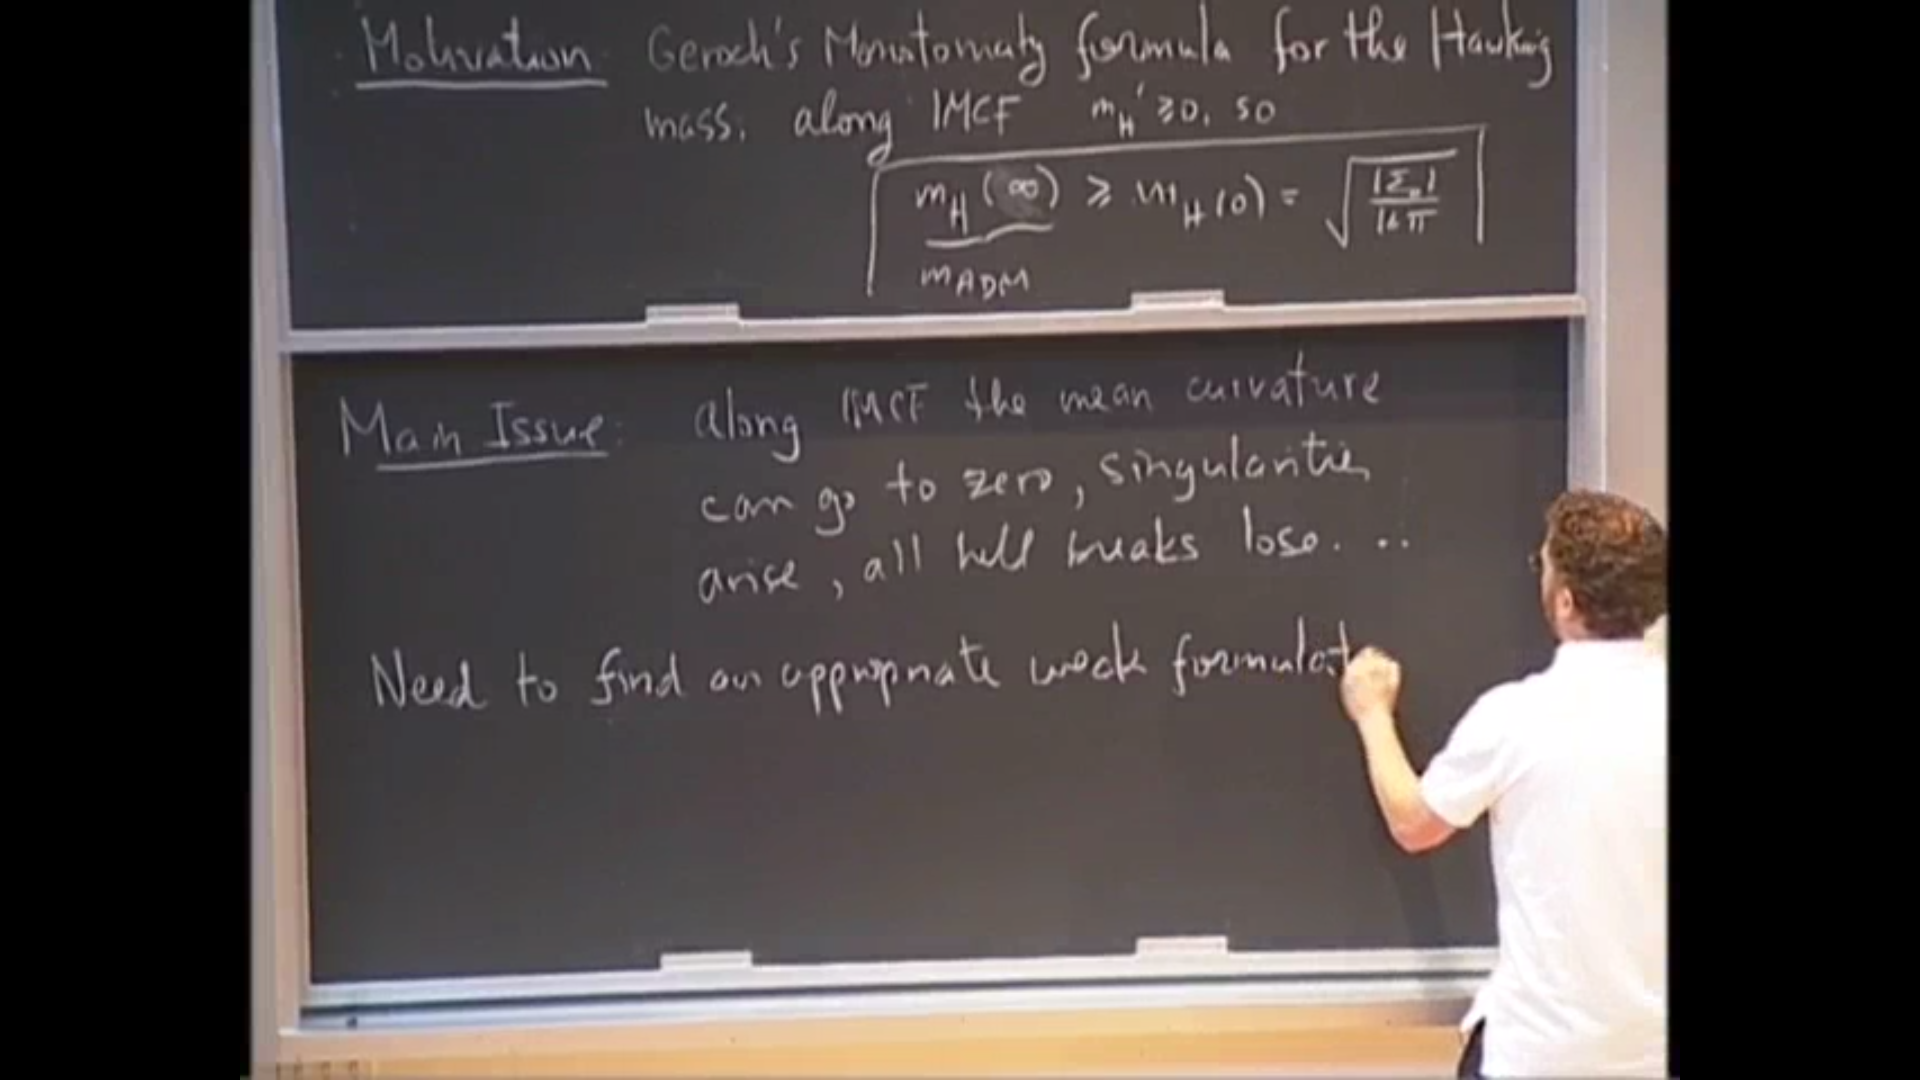 Motivation Geroch's Monotonicity formula for the Hawking
mass, along IMCF m_H' ≥ 0, so
m_H(∞) ≥ m_H(0) = √(|Σ_0|/16π)
m_ADM
Main Issue: along IMCF the mean curvature
can go to zero, singularities
arise, all hell breaks lose...
Need to find an appropriate weak formulat